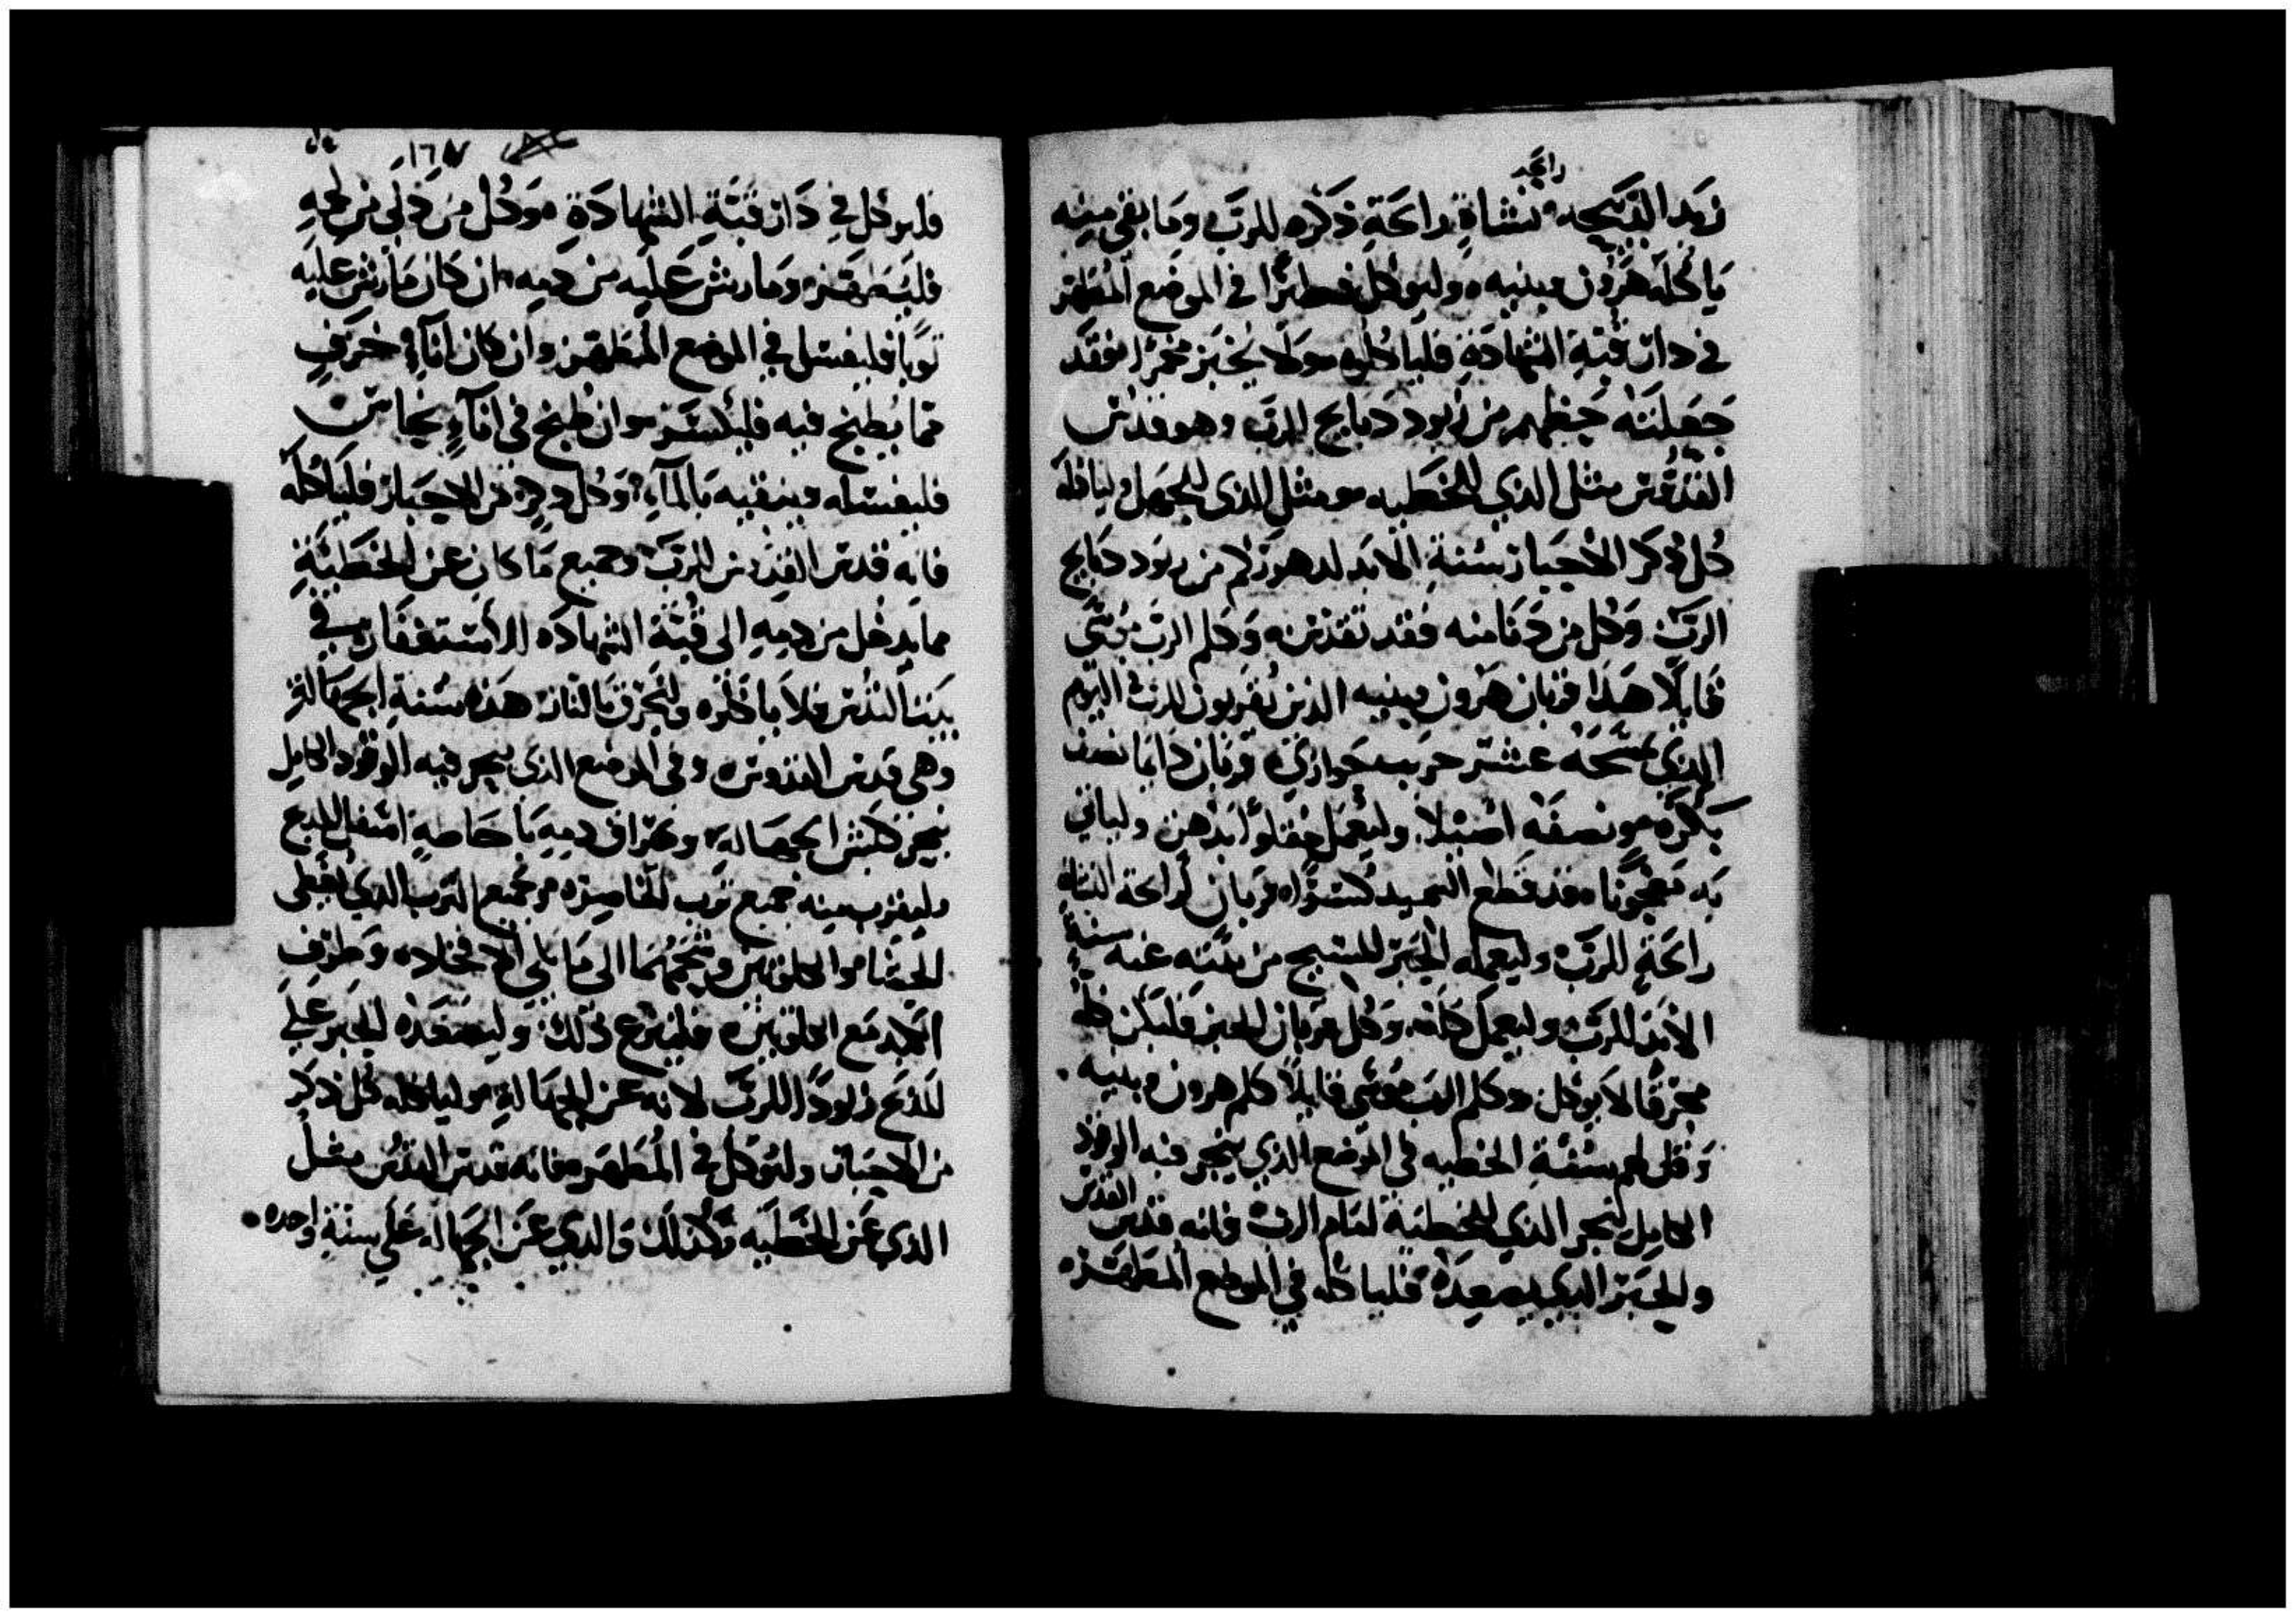 رايحه
نهد الذبيحه نشاة رايحة ذكره للرب وما بقي منه
ياكله هرون وبنيه وليوكل فطيرًا في الموضع المطهر
في دار قبة الشهادة فلياكلوه ولا يخبز مخمرًا فقد
جعلته حظهم من زبود دبايح الرب وهو قدس
القدوس مثل الذي للخطيه ومثل الذي للجهل ولياكله
كل ذكر الاحبار سنة الابد لدهوركم من زبود دبايح
الرب وكل من دنا منه فقد تقدس وكلم الرب موسى
قايلًا هذا قربان هرون وبنيه الذين يقربون للرب في اليوم
الذي تمسحه عشر جريب حوارى قربان دايما نصف
بكره ونصفه اصيلا وليعمل مقلوًا بدهن ولياتي
به معجونا قد قطع السميد كسورًا قربان لرايحة النشاة
رايحة للرب وليعمله الحبر المسيح من بنيه عنه سنة
الابد للرب وليعمل كله وكل قربان للحبر فليكن كله
محرقًا لا يوكل وكلم الرب موسى قايلا كلم هرون وبنيه
وقل لهم سنة الخطيه في الموضع الذي ينحر فيه الوقود
الكامل لينحر الذي للخطية امام الرب فانه قدس القدس
والحبر الذي يصعده فلياكله في الموضع المطهر
١٦٧
فليوكل في دار قبة الشهادة وكل من دنى من لحمه
فليتطهر وما رش عليه من دمه ان كان ما رش عليه
ثوبًا فليغسل في الموضع المطهر وان كان اناء خزف
مما يطبخ فيه فليكسر وان طبخ في اناء نحاس
فليغسله وينقيه بالماء وكل ذكر من الاحبار فلياكله
فانه قدس القدس للرب وجميع ما كان عن الخطية
مما يدخل من دمه الى قبة الشهاده للاستغفار في
بيت القدس فلا ياكلوه ولتحرق بالنار هذه سنة الجهالة
وهي قدس القدوس وفي الموضع الذي ينحر فيه الوقود الكامل
ينحر كبش الجهالة ويهراق دمه ما حاصه اسفل المذبح
وليقرب منه جميع ثرب الخاصره وجميع الثرب الذي يغطى
الحشا والكلوتين وشحمهما الى ما يلي الافخاد وطرف
الكبد مع الكلوتين فلينزع ذلك وليصعده الحبر على
المذبح زبودًا للرب لانه عن الجهالة ولياكله كل ذكر
من الاحبار وليوكل في المطهر فانه قدس القدس مثل
الذي عن الخطيه وكذلك والذي عن الجهاله على سنة واحده